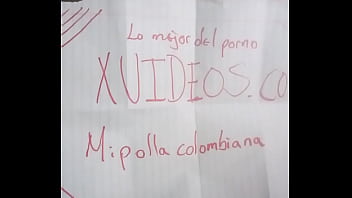 Lo mejor del porno
XVIDEOS.CO
Mi polla colombiana